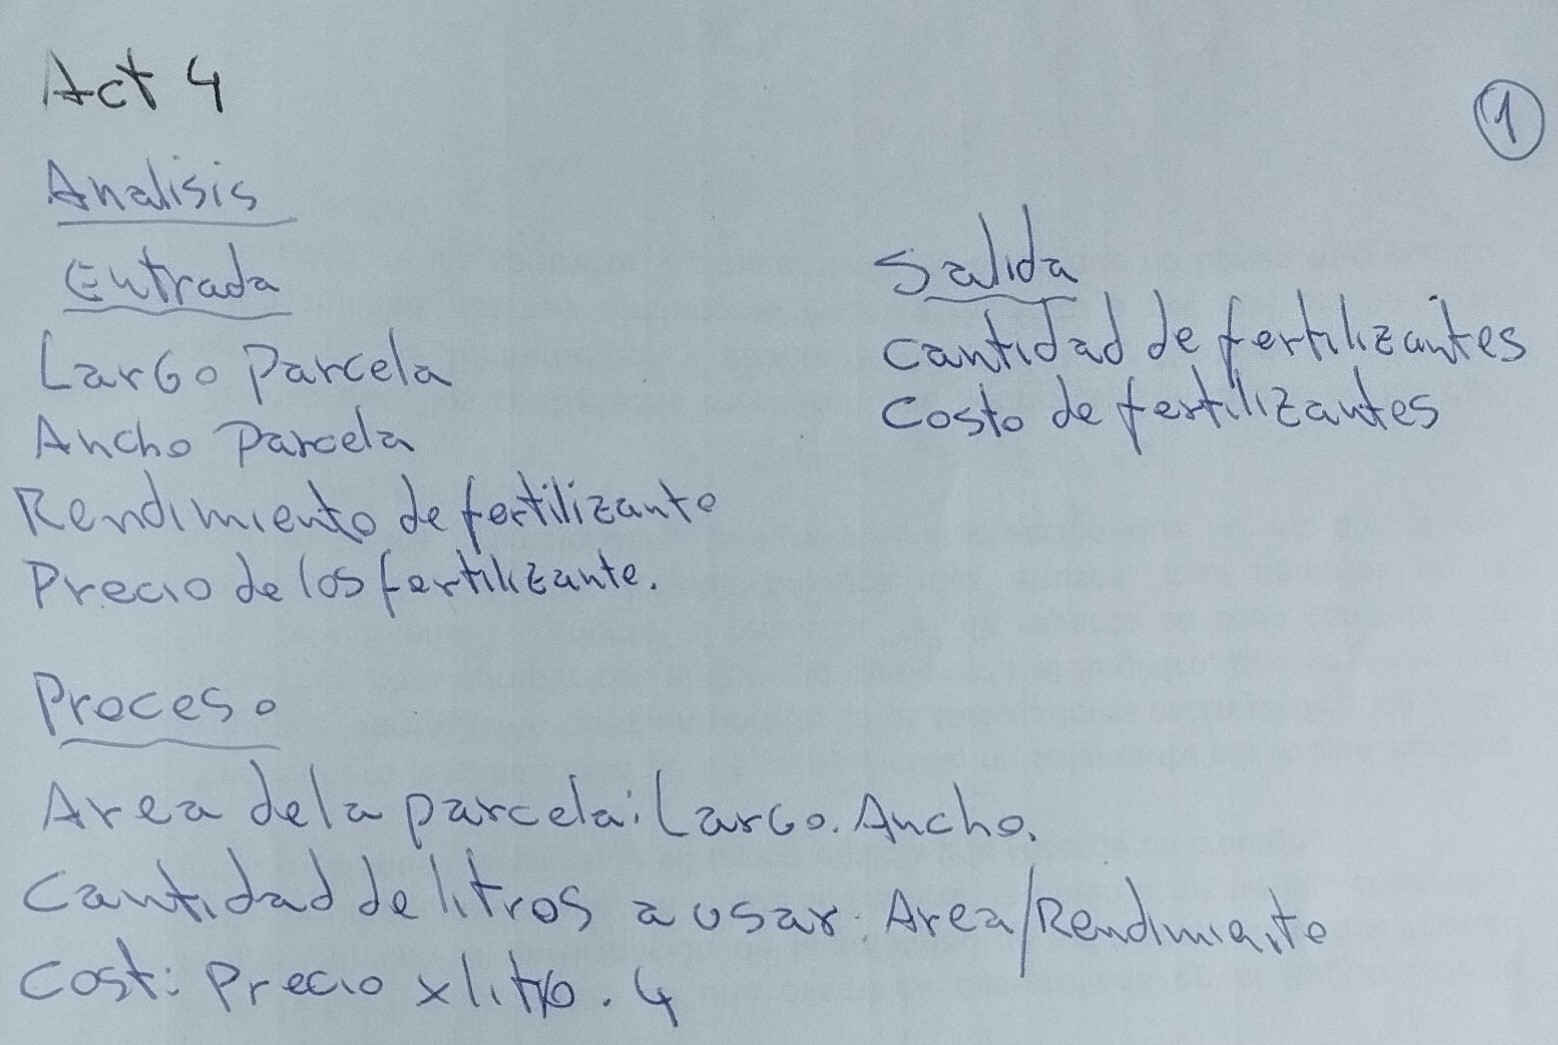 Act 4
1
Analisis
Entrada
Largo Parcela
Ancho Parcela
Rendimiento de fertilizante
Precio de los fertilizante.
Salida
Cantidad de fertilizantes
Costo de fertilizantes
Proceso
Area de la parcela: Largo . Ancho.
Cantidad de litros a usar: Area/Rendimiento
Cost: Precio x litro . 4